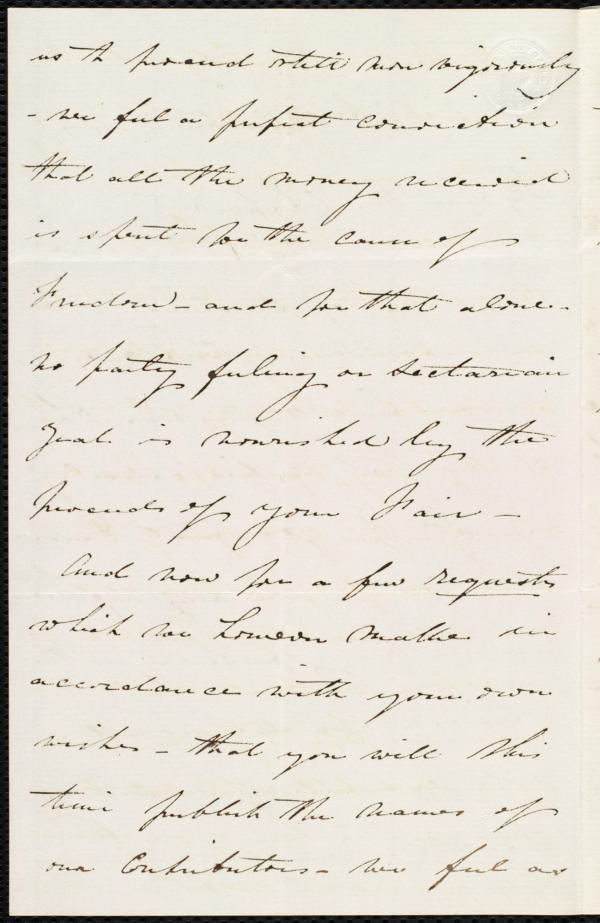 us to proceed still more vigorously
- we feel a perfect conviction
that all the money received
is spent for the cause of
Freedom - and for that alone -
no party feeling or sectarian
zeal is nourished by the
proceeds of your Fair -
And now for a few requests
which we however make in
accordance with your own
wishes - that you will this
time publish the names of
our Contributors - we feel as